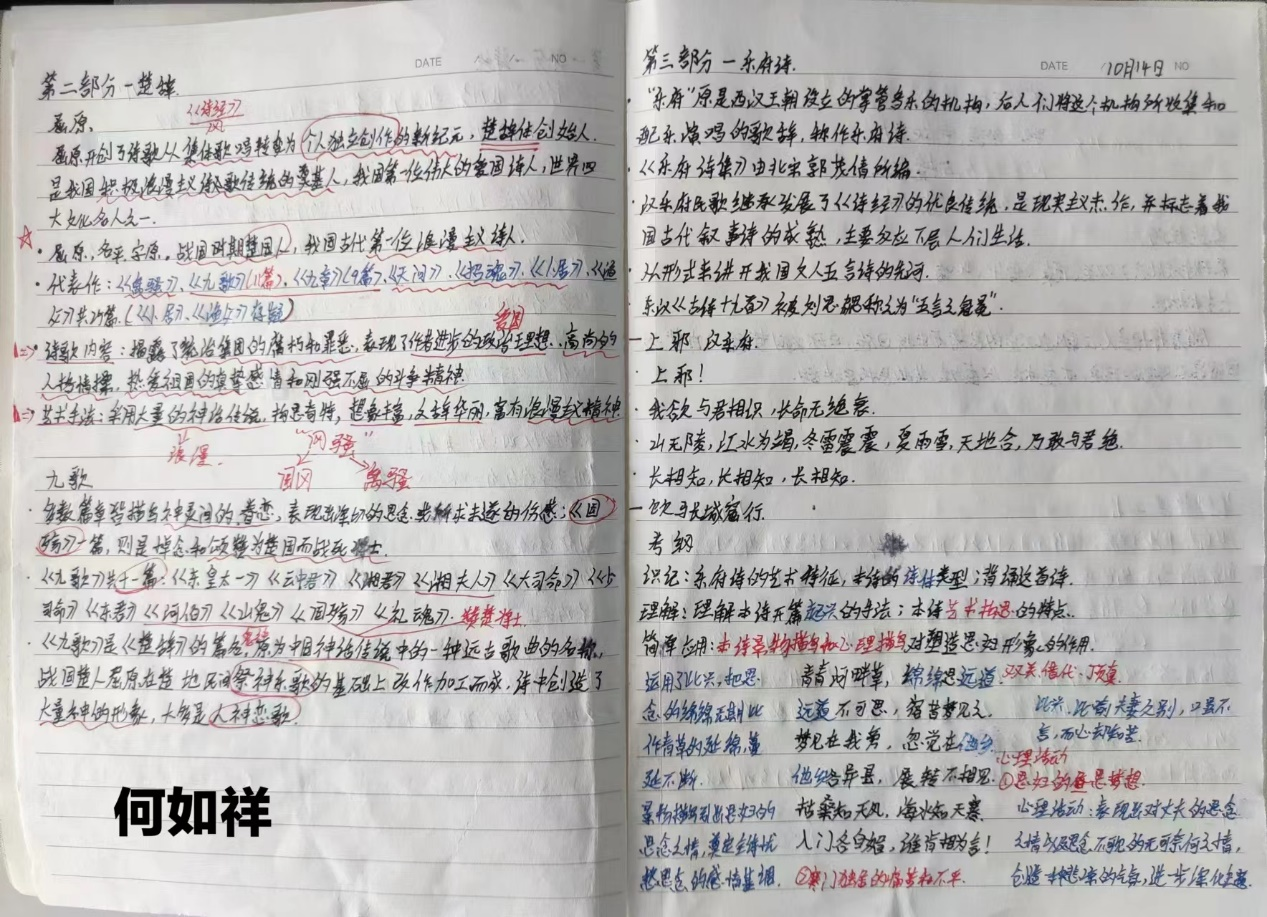 DATE NO
第二部分—楚辞.
《诗经》
风
屈原.
屈原开创了诗歌从集体歌唱转变为个人独立创作的新纪元,楚辞体创始人.
是我国积极浪漫主义诗歌传统的奠基人,我国第一位伟大的爱国诗人,世界四
大文化名人之一.
屈原,名平,字原。战国时期楚国人,我国古代第一位浪漫主义诗人.
代表作:《离骚》、《九歌》(11篇)、《九章》(9篇)、《天问》、《招魂》、《卜居》、《渔
父》共 篇.(《卜居》、《渔父》存疑)
爱国
诗歌内容:揭露了统治集团的腐朽和罪恶,表现了作者进步的政治理思想、高尚的
人格情操,热爱祖国的真挚感情和刚强不屈的斗争精神.
艺术手法:采用大量的神话传说,构思奇特,想象丰富,文辞华丽,富有浪漫主义精神
浪漫.
“风骚”
国风 离骚
九歌
多数篇章皆描写神灵间的眷恋,表现出深切的思念或所求未遂的伤感;《国
殇》一篇,则是悼念和颂赞为楚国而战死将士.
《九歌》共十一篇:《东皇太一》《云中君》《湘君》《湘夫人》《大司命》《少
司命》《东君》《河伯》《山鬼》《国殇》《礼魂》. 赞楚将士.
《九歌》是《楚辞》的篇名,原为中国神话传统中的一种远古歌曲的名称,
战国楚人屈原在楚地民间祭神乐歌的基础上改作加工而成.诗中创造了
大量神的形象,大多是人神恋歌.
何如祥
DATE 10月14日 NO
第三部分—乐府诗.
“乐府”原是西汉王朝设立的掌管音乐的机构,后人们将这个机构所收集和
配乐演唱的歌辞,称作乐府诗.
《乐府诗集》由北宋郭茂倩所编.
汉乐府民歌继承发展了《诗经》的优良传统,是现实主义杰作,并标志着我
国古代叙事诗的成熟,主要反应下层人们生活.
从形式来讲开我国文人五言诗的先河.
东汉《古诗十九首》被刘思勰称之为“五言之冠冕”.
—上邪·汉乐府.
上邪!
我欲与君相识,长命无绝衰.
山无陵,江水为竭,冬雷震震,夏雨雪,天地合,乃敢与君绝.
长相知,长相知,长相知.
—饮马长城窟行.
考纲
识记:乐府诗的艺术特征,本诗的诗体类型;背诵这首诗.
理解:理解本诗开篇起兴的手法;本诗艺术构思的特点.
简单应用:本诗景物描写和心理描写对塑造思妇形象的作用.
运用了比兴,把思 青青河畔草,绵绵思远道. 双关、借代、顶真
念的绵绵无期比 远道不可思,宿昔梦见之. 比兴,比喻夫妻之别,口虽不
作青草的延绵,蔓 梦见在我旁,忽觉在他乡. 言,而心却知苦.
心理活动
延不断. 他乡各异县,展转不相见. ①思妇的昼思梦想.
景物描写烈出思妇的 枯桑知天风,海水知天寒 心理活动:表现出对丈夫的思念
思念之情,奠定全诗忧 入门各自媚,谁肯相为言! 之情以及思念不归的无可奈何之情,
愁思念的感情基调. ②寒门独居的痛苦和不平. 创造一种悲凉的气氛,进一步深化主题.